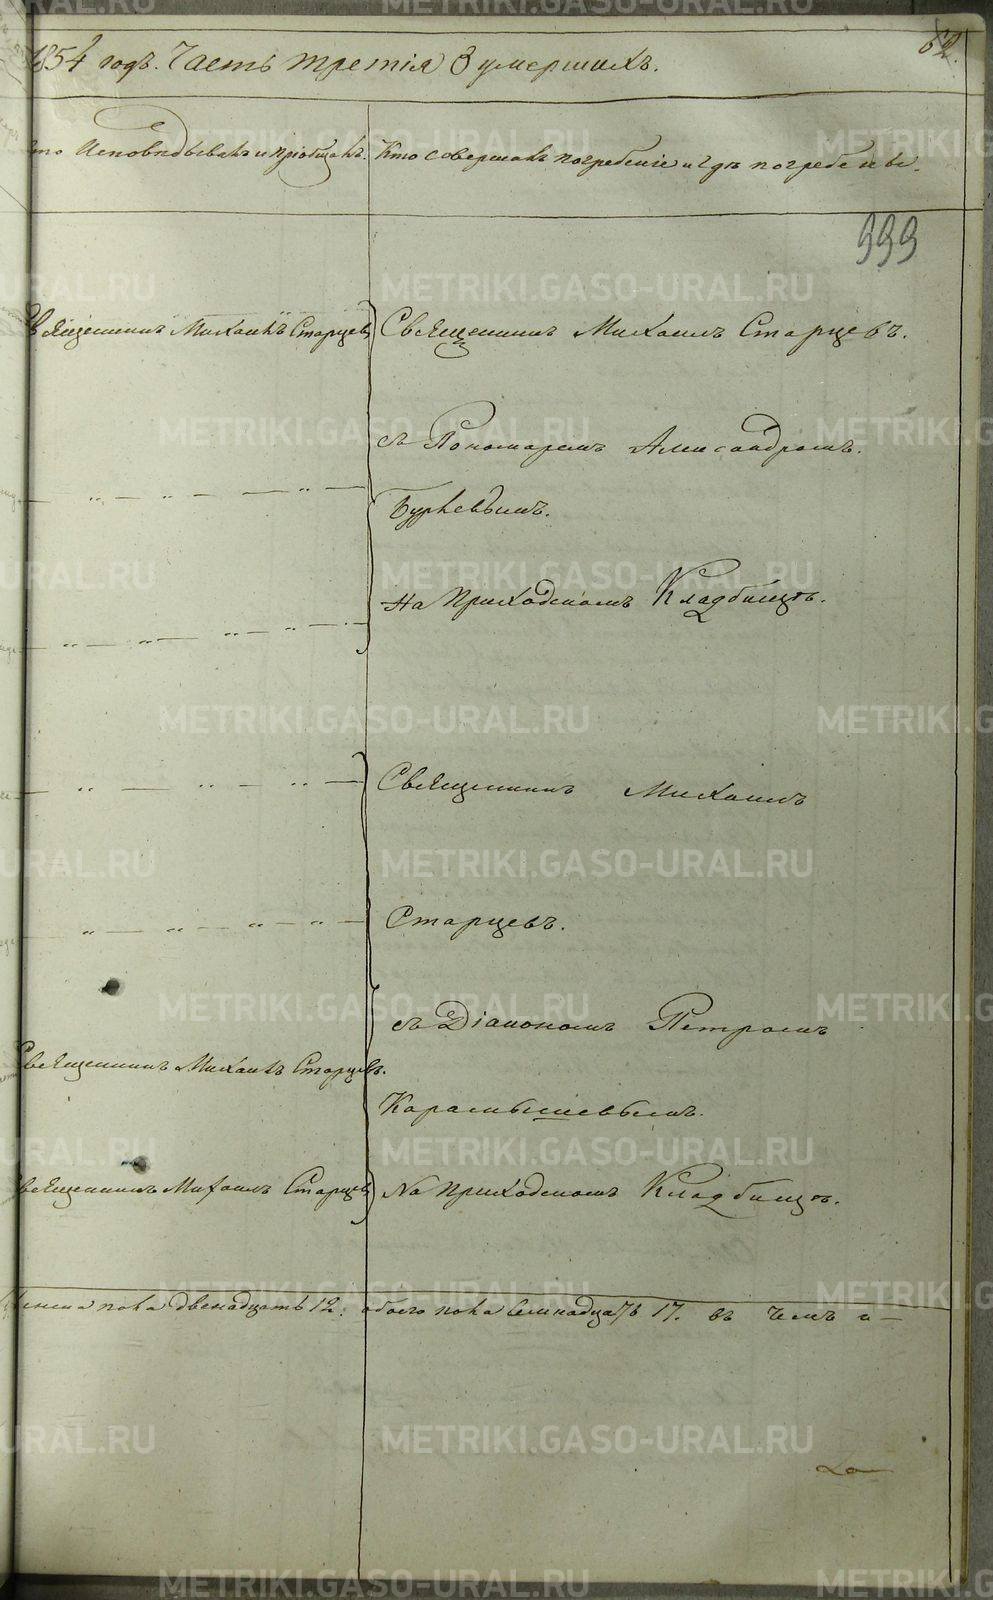 1854 годъ. Часть третія о умершихъ.
62.
кто Исповѣдывалъ и пріобщалъ.
Кто совершалъ погребеніе и гдѣ погребены.
999
Священникъ Михаилъ Старцевъ
Священникъ Михаилъ Старцевъ.
съ Пономаремъ Александромъ.
— „ — „ — — „ —
— „ — „ — „ —
На Приходскомъ Кладбищѣ.
— „ — „ — „ —
Священникъ Михаилъ
— „ — „ — „ — „ —
Старцевъ.
съ Діакономъ Петромъ
Священникъ Михаилъ Старцевъ.
Карамышевымъ.
Священникъ Михаилъ Старцевъ
На Приходскомъ Кладбищѣ.
Женска пола двенадцать 12. обоего пола семнадцать 17. въ чемъ и —
METRIKI.GASO-URAL.RU